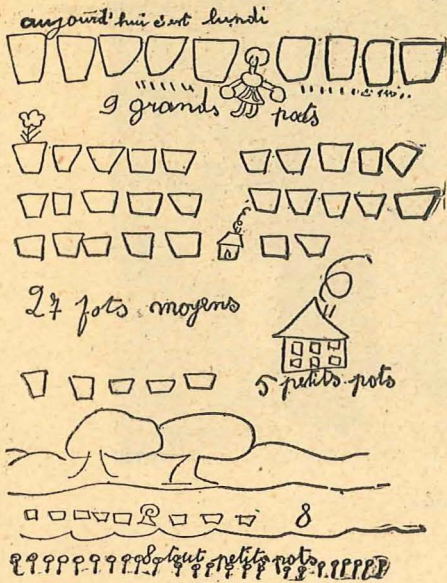 aujourd'hui c'est lundi
9 grands pots
27 pots moyens
5 petits pots
8
8 tout petits pots